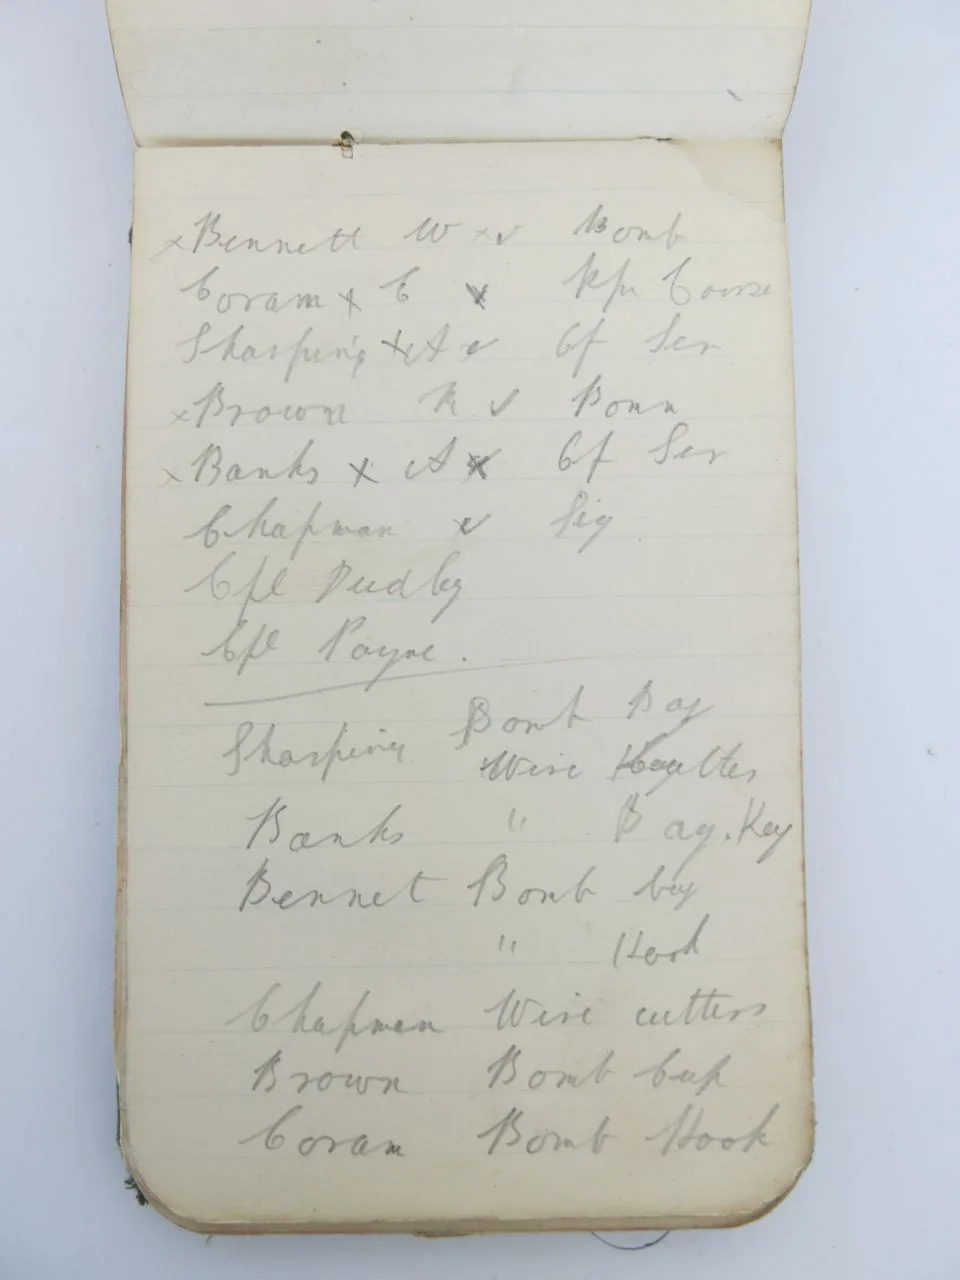 x Bennett W x ✓ Bomb
Coram x C x Course
Sharping x A ✓ Of Ser
x Brown R ✓
x Banks x A x Of Ser
Chapman x ✓ Sig
Cpl Dudley
Cpl Payne.
Sharping Bomb Bag
Wire
Banks " Bag. Key
Bennet Bomb
" Hook
Chapman Wire cutters
Brown Bomb Cup
Coram Bomb Hook